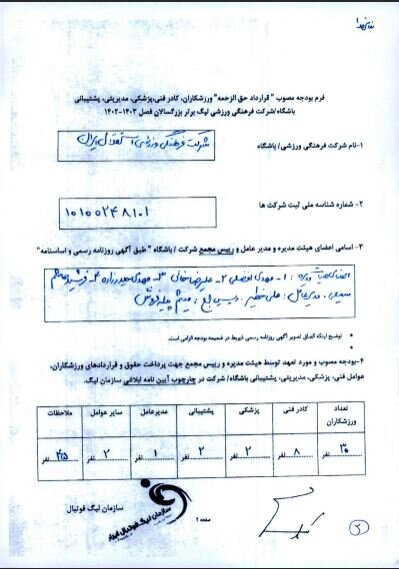 فرم بودجه مصوب " قرارداد حق الزحمه" ورزشکاران، کادر فنی،پزشکی، مدیریتی، پشتیبانی
باشگاه/شرکت فرهنگی ورزشی لیگ برتر بزرگسالان فصل ۱۴۰۳-۱۴۰۲
۱-نام شرکت فرهنگی ورزشی/ باشگاه
شرکت فرهنگی ورزشی استقلال ایران
۲- شماره شناسه ملی ثبت شرکت ها
۱۰۱۰۰۲۴۸۱۰۱
۳- اسامی اعضای هیئت مدیره و مدیر عامل و رییس مجمع شرکت / باشگاه " طبق آگهی روزنامه رسمی و اساسنامه"
اعضای هیات مدیره : ۱- مهدی افضلی ۲- علیرضا ۳- مهدی ۴- فرشید
مدیرعامل : علی خطیر. رییس مجمع : میثم
توضیح اینکه الصاق تصویر آگهی روزنامه رسمی ذیربط در ضمیمه بودجه الزامی است.
۴-بودجه مصوب و مورد تعهد توسط هیئت مدیره و رییس مجمع جهت پرداخت حقوق و قراردادهای ورزشکاران،
عوامل فنی، پزشکی، مدیریتی، پشتیبانی باشگاه/ شرکت در چارچوب آیین نامه ابلاغی سازمان لیگ.
تعداد ورزشکاران کادر فنی پزشکی پشتیبانی مدیرعامل سایر عوامل ملاحظات
۳۰ نفر ۸ نفر ۲ نفر ۲ نفر ۱ نفر ۲ نفر ۴۵ نفر
سازمان لیگ فوتبال
سازمان لیگ فوتبال ایران
صفحه ۱